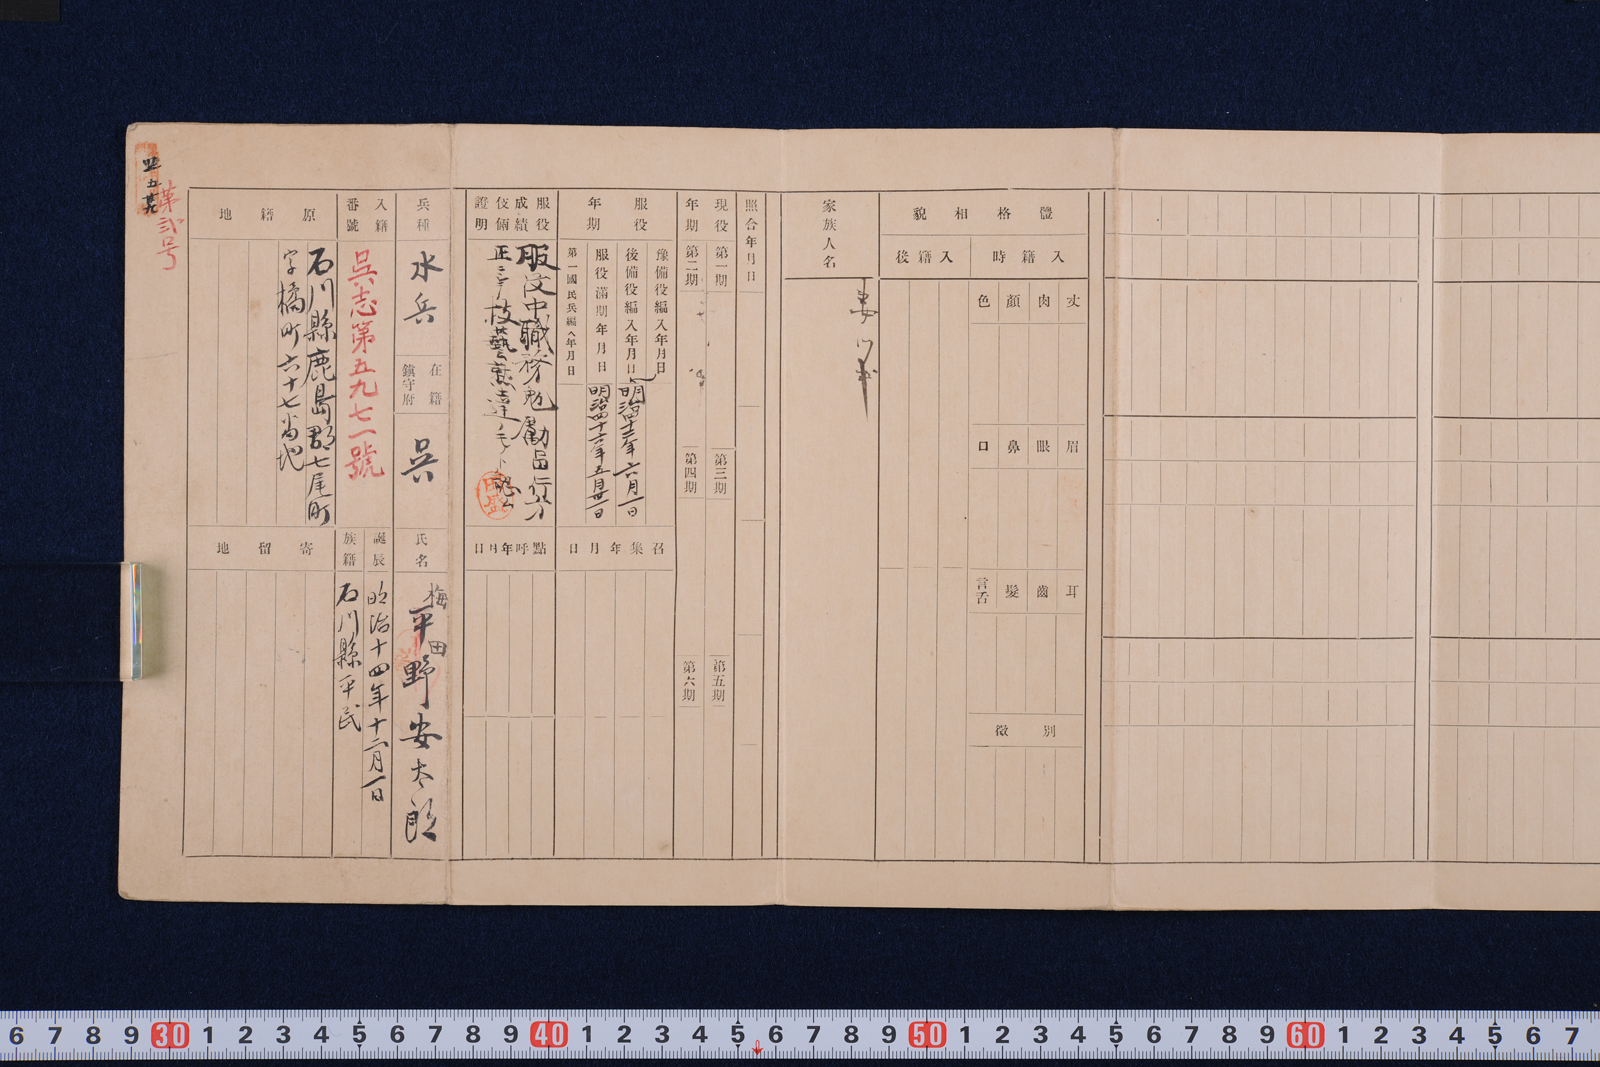 體格相貌
入籍時
入籍後
丈
肉
顏
色
眉
眼
鼻
口
耳
齒
髮
言舌
別徵
家族人名
妻
照合年月日
現役年期
第一期
第二期
第三期
第四期
第五期
第六期
服役年期
豫備役編入年月日
後備役編入年月日
明治四十二年六月一日
服役滿期年月日
明治四十六年五月卅一日
第一國民兵編入年月日
召集年月日
服役成績伎倆證明
服役中職務勉勵品行方
正ニシテ技藝熟達
點呼年月日
兵種
水兵
在籍鎮守府
呉
氏名
梅田
平野安太郎
入籍番號
呉志第五九七一號
誕辰
明治十四年十二月一日
族籍
石川縣平民
原籍地
石川縣鹿島郡七尾町
字橘町六十七番地
寄留地
第弐号
6 7 8 9 30 1 2 3 4 5 6 7 8 9 40 1 2 3 4 5 6 7 8 9 50 1 2 3 4 5 6 7 8 9 60 1 2 3 4 5 6 7